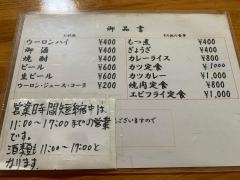 御品書
ウーロンハイ ¥400
御酒 ¥400
焼酎 ¥400
ビール ¥600
生ビール ¥600
ウーロン・ジュース・コーラ ¥200
もつ煮 ¥400
ぎょうざ ¥400
カレーライス ¥800
カツ定食 ¥1000
カツカレー ¥1,000
焼肉定食 ¥800
エビフライ定食 ¥1,000
営業時間短縮中は、
11:00〜17:00までの営業
です。
酒類も11:00〜17:00と
かります。
ございますので